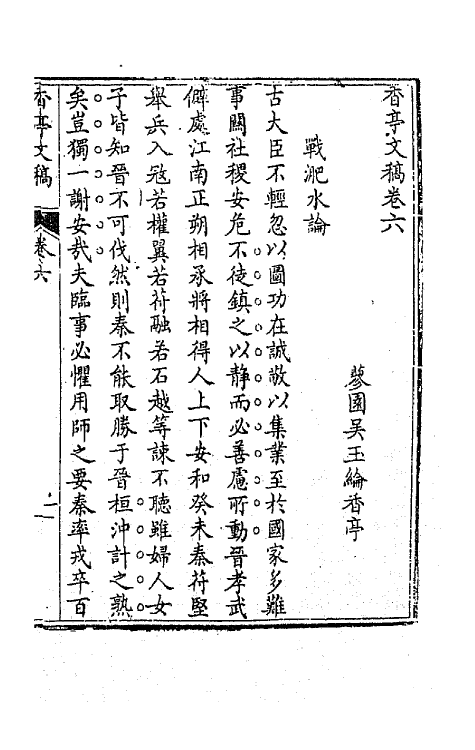 香亭文稿卷六
蓼園吳玉綸香亭
戰淝水論
古大臣不輕忽以圖功在誠敬以集業至於國家多難
事關社稷安危不徒鎮之以靜而必善慮所動晉孝武
僻處江南正朔相承將相得人上下安和癸未秦苻堅
舉兵入冦若權翼若苻融若石越等諫不聽雖婦人女
子皆知晉不可伐然則秦不能取勝于晉桓沖計之熟
矣豈獨一謝安㢤夫臨事必懼用師之要秦率戎卒百
香亭文稿
卷六
一